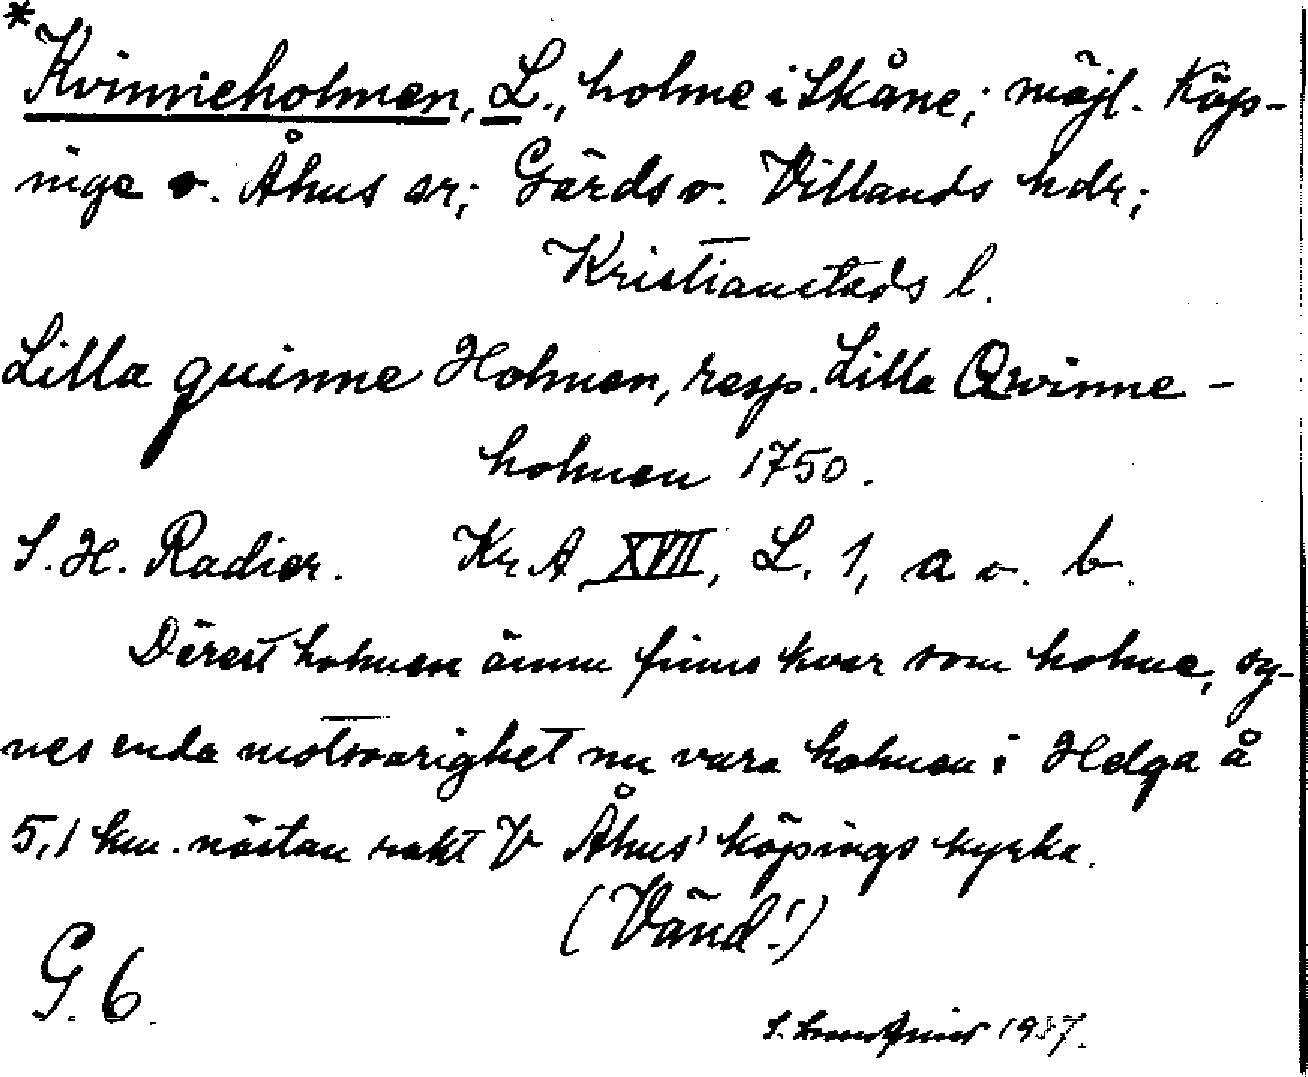 *Kvinneholmen, L., holme i Skåne; möjl. Köp-
inge o. Åhus sr; Gärds o. Villands hdr;
Kristianstads l.
Lilla quinne Holmen, resp. Lilla Qvinne-
holmen 1750.
S. H. Radier. KrA XVII, L. 1, a o. b.
Därest holmen ännu finns kvar som holme, sy-
nes enda motsvarighet nu vara holmen i Helga å
5,1 km. nästan rakt V Åhus' köpings kyrka.
(Vänd!)
G. 6.
1937.